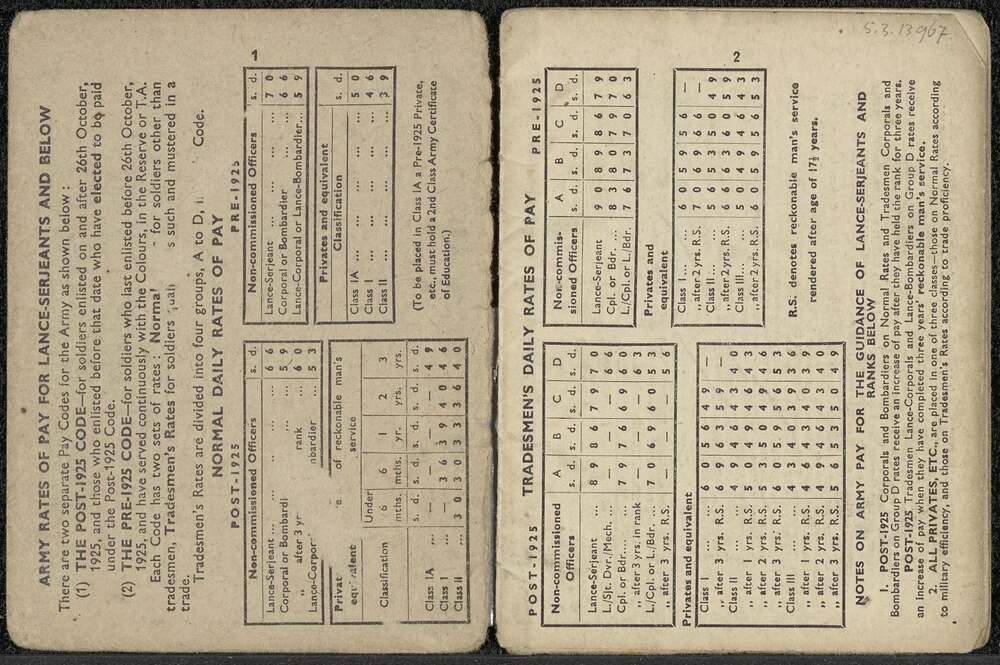 1
ARMY RATES OF PAY FOR LANCE-SERJEANTS AND BELOW
There are two separate Pay Codes for the Army as shown below :
(1) THE POST-1925 CODE—for soldiers enlisted on and after 26th October,
1925, and those who enlisted before that date who have elected to be paid
under the Post-1925 Code.
(2) THE PRE-1925 CODE—for soldiers who last enlisted before 26th October,
1925, and have served continuously with the Colours, in the Reserve or T.A.
Each Code has two sets of rates : Normal for soldiers other than
tradesmen, Tradesmen's Rates for soldiers such and mustered in a
trade.
Tradesmen's Rates are divided into four groups, A to D, Code.
NORMAL DAILY RATES OF PAY
POST-1925
Non-commissioned Officers s. d.
Lance-Serjeant ... 6 6
Corporal or Bombardi 5 9
„ after 3 yr rank 6 0
Lance-Corpor nbardier 5 3
Privat
equivalent
of reckonable man's
service
Classification Under 6 mths. 6 mths. 1 yr. 2 yrs. 3 yrs.
s. d. s. d. s. d. s. d. s. d.
Class IA — — — 4 9
Class I — 3 6 3 9 4 0 4 6
Class II 3 0 3 3 3 3 3 6 4 0
PRE-1925
Non-commissioned Officers s. d.
Lance-Serjeant ... 7 0
Corporal or Bombardier ... 6 6
Lance-Corporal or Lance-Bombardier... 5 9
Privates and equivalent
Classification s. d.
Class IA ... 5 0
Class I ... 4 6
Class II ... 3 9
(To be placed in Class IA a Pre-1925 Private,
etc., must hold a 2nd Class Army Certificate
of Education.)
2
S.3.13967
TRADESMEN'S DAILY RATES OF PAY
POST-1925
Non-commissioned Officers A B C D
s. d. s. d. s. d. s. d.
Lance-Serjeant ... 8 9 8 6 7 9 7 0
L./Sjt. Dvr./Mech. ... — — — 7 6
Cpl. or Bdr.... 7 9 7 6 6 9 6 0
„ after 3 yrs. in rank — — — 6 6
L/Cpl. or L./Bdr. ... 7 0 6 9 6 0 5 3
„ after 3 yrs. ... — — — 5 6
Privates and equivalent
Class I ...
„ after 3 yrs. R.S.
Class II ...
„ after 1 yrs. R.S.
„ after 2 yrs. R.S.
„ after 3 yrs. R.S.
Class III ...
„ after 1 yrs. R.S.
„ after 2 yrs. R.S.
„ after 3 yrs. R.S.
PRE-1925
Non-commis-
sioned Officers A B C D
s. d. s. d. s. d. s. d.
Lance-Serjeant 9 0 8 9 8 6 7 9
Cpl. or Bdr. ... 8 3 8 0 7 9 7 0
L./Cpl. or L./Bdr. 7 6 7 3 7 0 6 3
Privates and
equivalent
Class I... ... 6 0 5 9 5 6 —
„ after 2 yrs. R.S. 7 0 6 9 6 6 —
Class II... ... 5 6 5 3 5 0 4 9
„ after 2 yrs. R.S. 6 6 6 3 6 0 5 9
Class III... ... 5 0 4 9 4 6 4 3
„ after 2 yrs. R.S. 6 0 5 9 5 6 5 3
R.S. denotes reckonable man's service
rendered after age of 17½ years.
NOTES ON ARMY PAY FOR THE GUIDANCE OF LANCE-SERJEANTS AND
RANKS BELOW
1. POST-1925 Corporals and Bombardiers on Normal Rates and Tradesmen Corporals and
Bombardiers on Group D rates receive an increase of pay after they have held the rank for three years.
POST-1925 Tradesmen Lance-Corporals and Lance-Bombardiers on Group D rates receive
an increase of pay when they have completed three years' reckonable man's service.
2. ALL PRIVATES, ETC., are placed in one of three classes—those on Normal Rates according
to military efficiency, and those on Tradesmen's Rates according to trade proficiency.